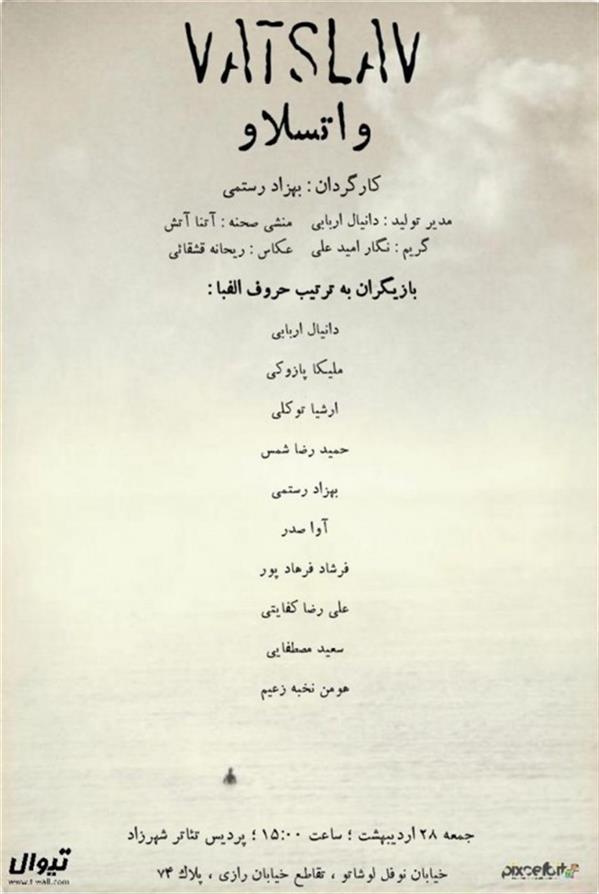 VATSLAV
واتسلاو
کارگردان : بهزاد رستمی
مدیر تولید : دانیال اربابی منشی صحنه : آتنا آتش
گریم : نگار امید علی عکاس : ریحانه قشقائی
بازیگران به ترتیب حروف الفبا :
دانیال اربابی
ملیکا پازوکی
ارشیا توکلی
حمید رضا شمس
بهزاد رستمی
آوا صدر
فرشاد فرهاد پور
علی رضا کفایتی
سعید مصطفایی
هومن نخبه زعیم
جمعه ۲۸ اردیبهشت ؛ ساعت ۱۵:۰۰ ؛ پردیس تئاتر شهرزاد
خیابان نوفل لوشاتو ، تقاطع خیابان رازی ، پلاک ۷۴
تیوال